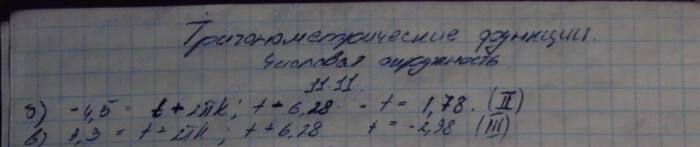 Тригонометрические функции.
Числовая окружность
11.11.
б) -4,5 = t + 2πk; t + 6,28 - t = 1,78. (II)
в) 3,3 = t - 2πk; t + 6,28 t = -2,98 (III)